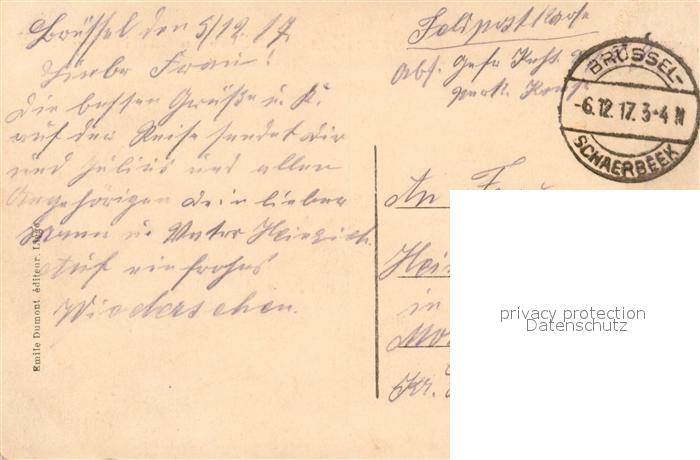 Brüssel den 5/12.17
Liebe Frau!
Die besten Grüße u. K.
auf der Reise sendet Dir
und Julius und allen
Angehörigen Dein lieber
Mann u. Vater Heinrich.
Auf ein frohes
Wiedersehen.
Emile Dumont, éditeur,
Feldpostkarte
Abs. Gefr.
BRÜSSEL-
-6.12.17. 3-4 N
SCHAERBEEK
An Frau
in
Kr.
privacy protection
Datenschutz